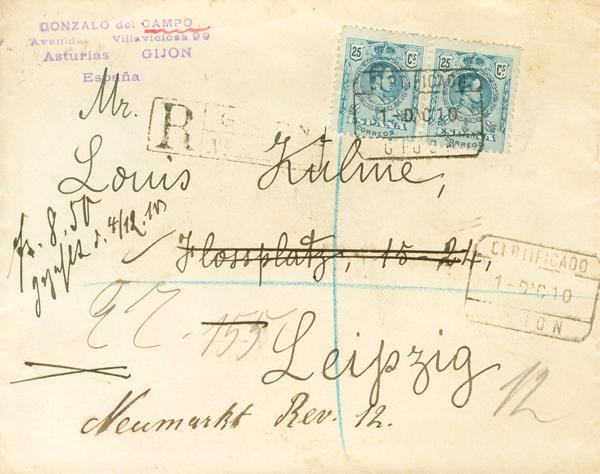 GONZALO del CAMPO
Avenida Villaviciosa 99
Asturias GIJON
España
25 Cs 25 Cs
ESPAÑA ESPAÑA
CORREOS CORREOS
CERTIFICADO
1-DIC10
GIJON
R
Mr.
Louis Kühne,
Flossplatz, 15-24,
Leipzig
fr. 8.50
4/12.10
155
CERTIFICADO
1-DIC10
GIJON
12
Neumarkt Rev. 12.